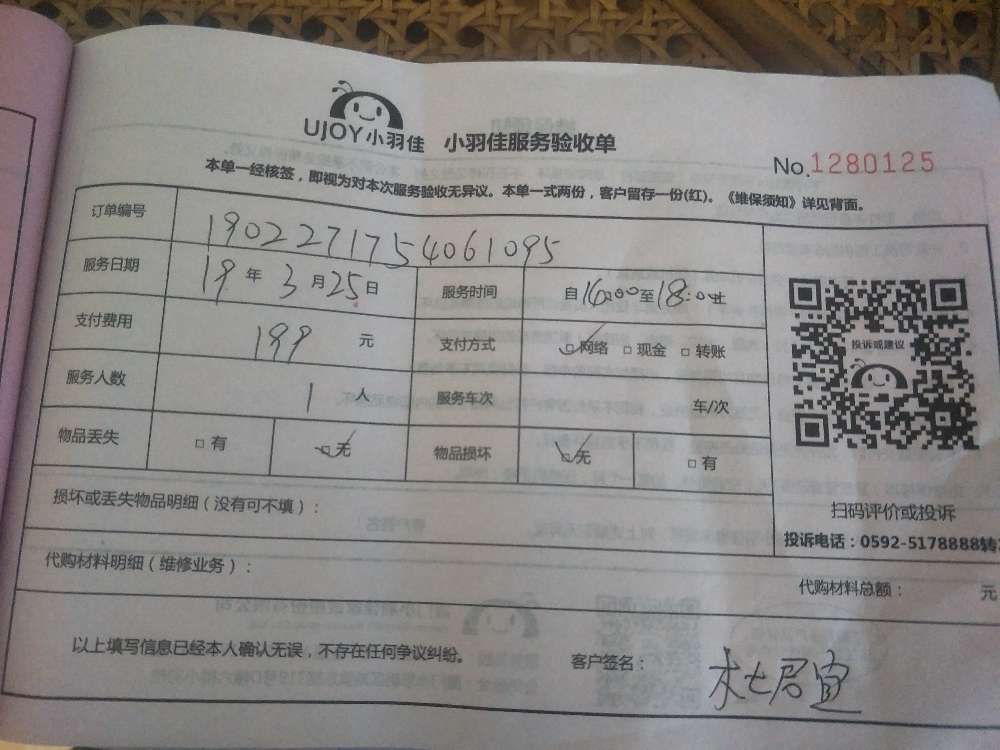 UJOY小羽佳 小羽佳服务验收单
No.1280125
本单一经核签，即视为对本次服务验收无异议。本单一式两份，客户留存一份(红)。《维保须知》详见背面。
订单编号 1902271754061095
服务日期 19年3月25日 服务时间 自16:00至18:00止
支付费用 199 元 支付方式 ☑网络 □现金 □转账
投诉或建议
服务人数 1 人 服务车次 车/次
物品丢失 □有 ☑无 物品损坏 ☑无 □有
损坏或丢失物品明细（没有可不填）：
扫码评价或投诉
投诉电话：0592-5178888转
代购材料明细（维修业务）：
代购材料总额： 元
以上填写信息已经本人确认无误，不存在任何争议纠纷。 客户签名： 杜君宜